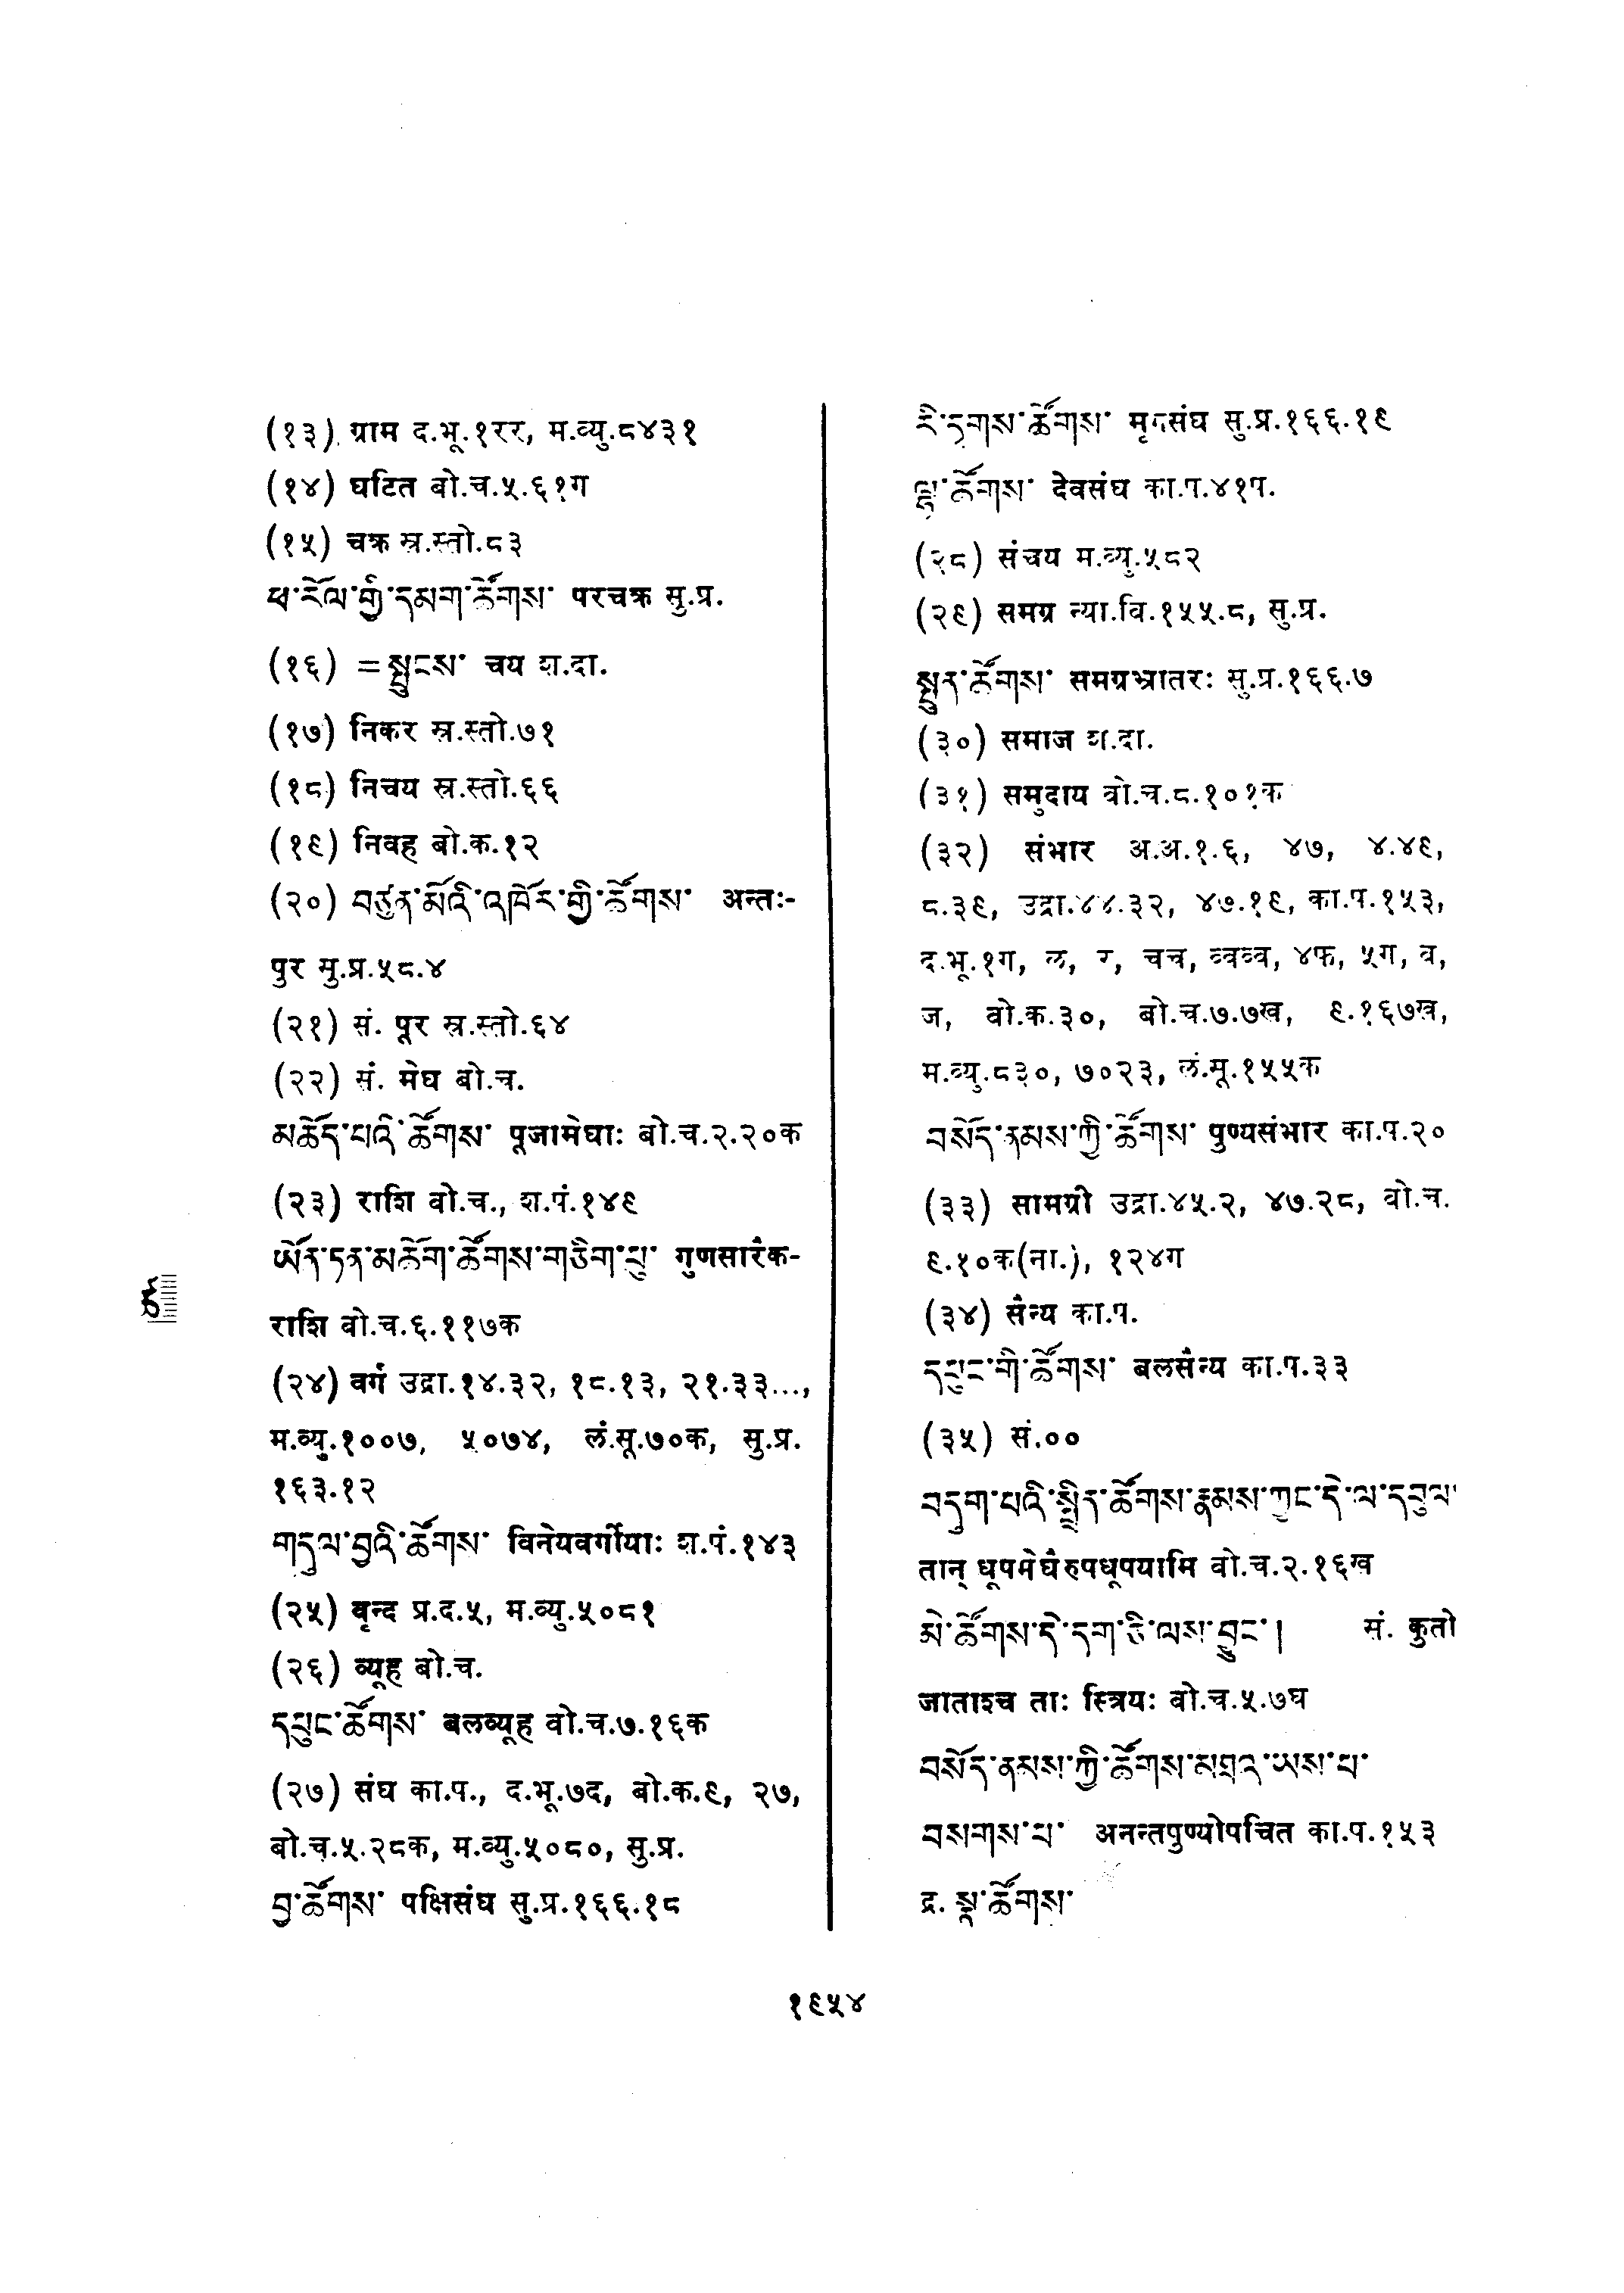 (१३) ग्राम द.भू.१रर, म.व्यु.८४३१
(१४) घटित बो.च.५.६१ग
(१५) चक्र स्र.स्तो.८३
ཕ་རོལ་གྱི་དམག་ཚོགས་ परचक्र सु.प्र.
(१६) =སྤུངས་ चय श.दा.
(१७) निकर स्र.स्तो.७१
(१८) निचय स्र.स्तो.६६
(१९) निवह बो.क.१२
(२०) བཙུན་མོའི་འཁོར་གྱི་ཚོགས་ अन्तः-
पुर सु.प्र.५८.४
(२१) सं. पूर स्र.स्तो.६४
(२२) सं. मेघ बो.च.
མཆོད་པའི་ཚོགས་ पूजामेघाः बो.च.२.२०क
(२३) राशि बो.च., श.पं.१४९
ཡོན་ཏན་མཆོག་ཚོགས་གཅིག་པུ་ गुणसारैक-
राशि बो.च.६.११७क
(२४) वर्ग उद्रा.१४.३२, १८.१३, २१.३३...,
म.व्यु.१००७, ५०७४, लं.सू.७०क, सु.प्र.
१६३.१२
གདུལ་བྱའི་ཚོགས་ विनेयवर्गीयाः श.पं.१४३
(२५) वृन्द प्र.द.५, म.व्यु.५०८१
(२६) व्यूह बो.च.
དཔུང་ཚོགས་ बलव्यूह बो.च.७.१६क
(२७) संघ का.प., द.भू.७द, बो.क.९, २७,
बो.च.५.२८क, म.व्यु.५०८०, सु.प्र.
བྱ་ཚོགས་ पक्षिसंघ सु.प्र.१६६.१८
རི་དྭགས་ཚོགས་ मृगसंघ सु.प्र.१६६.१९
ལྷ་ཚོགས་ देवसंघ का.प.४१प.
(२८) संचय म.व्यु.५८२
(२९) समग्र न्या.वि.१५५.८, सु.प्र.
སྤུན་ཚོགས་ समग्रभ्रातरः सु.प्र.१६६.७
(३०) समाज श.दा.
(३१) समुदाय बो.च.८.१०१क
(३२) संभार अ.अ.१.६, ४७, ४.४९,
८.३९, उद्रा.४४.३२, ४७.१९, का.प.१५३,
द.भू.१ग, ल, र, चच, व्वव्व, ४फ, ५ग, व,
ज, बो.क.३०, बो.च.७.७ख, ९.१६७ख,
म.व्यु.८३०, ७०२३, लं.सू.१५५क
བསོད་ནམས་ཀྱི་ཚོགས་ पुण्यसंभार का.प.२०
(३३) सामग्री उद्रा.४५.२, ४७.२८, बो.च.
९.१०क(ना.), १२४ग
(३४) सैन्य का.प.
དཔུང་གི་ཚོགས་ बलसैन्य का.प.३३
(३५) सं.००
བདུག་པའི་སྤྲིན་ཚོགས་རྣམས་ཀྱང་དེ་ལ་དབུལ་
तान् धूपमेघैरुपधूपयामि बो.च.२.१६ख
མེ་ཚོགས་དེ་དག་ཅི་ལས་བྱུང་། सं. कुतो
जाताश्च ताः स्त्रियः बो.च.५.७घ
བསོད་ནམས་ཀྱི་ཚོགས་མཐའ་ཡས་པ་
བསགས་པ་ अनन्तपुण्योपचित का.प.१५३
द्र. སྣ་ཚོགས་
ཚ
१९५४